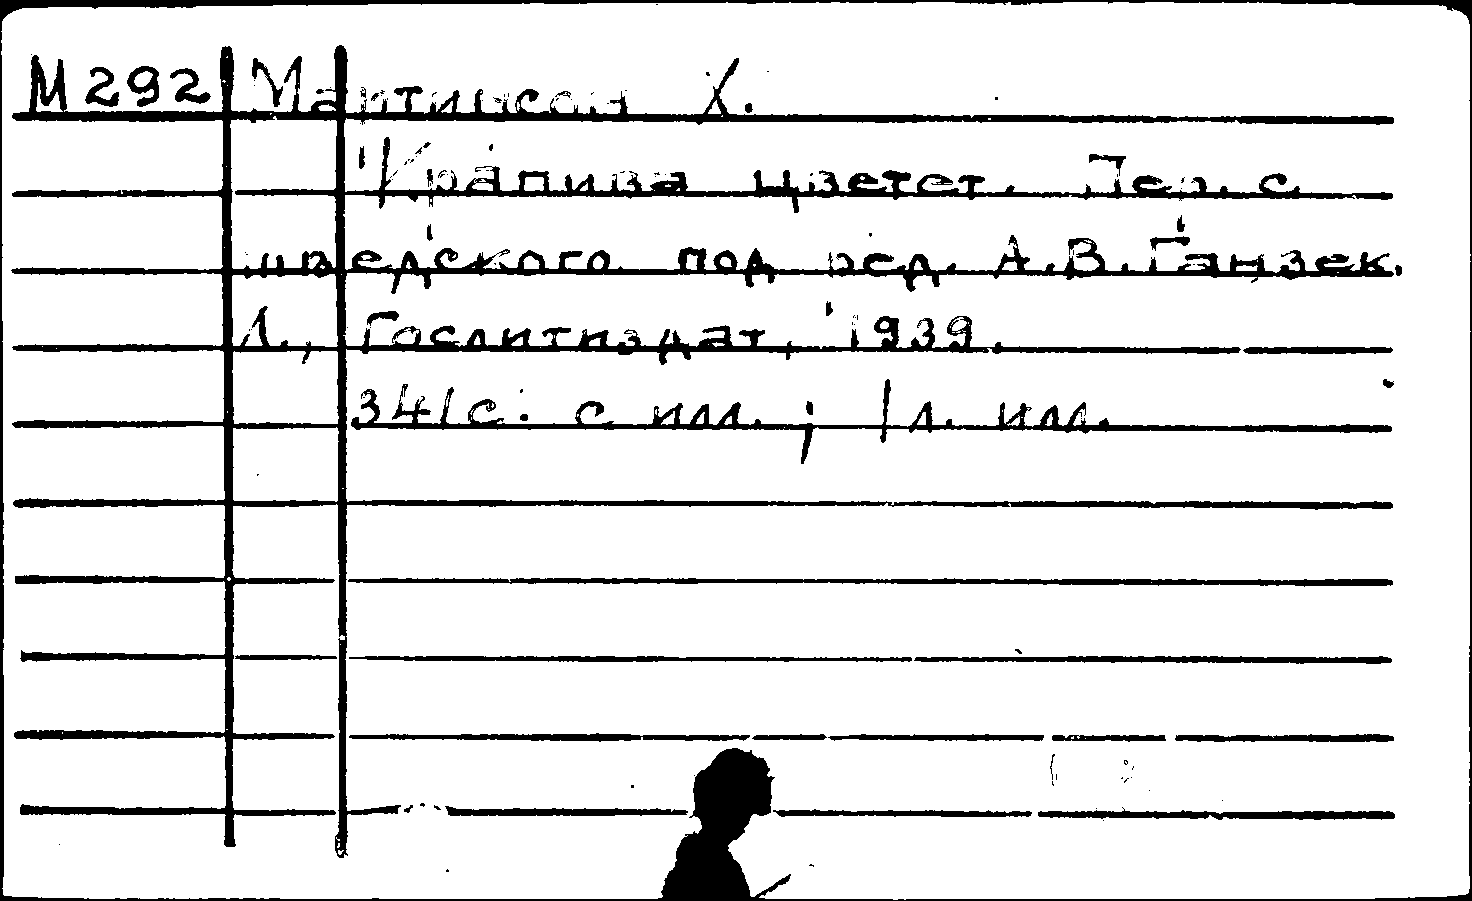 М292 Мартинсон Х.
Крапива цветет. Пер. с
шведского под ред. А.В.Ганзек.
Л., Гослитиздат, 1939.
341с. с илл.; 1л. илл.